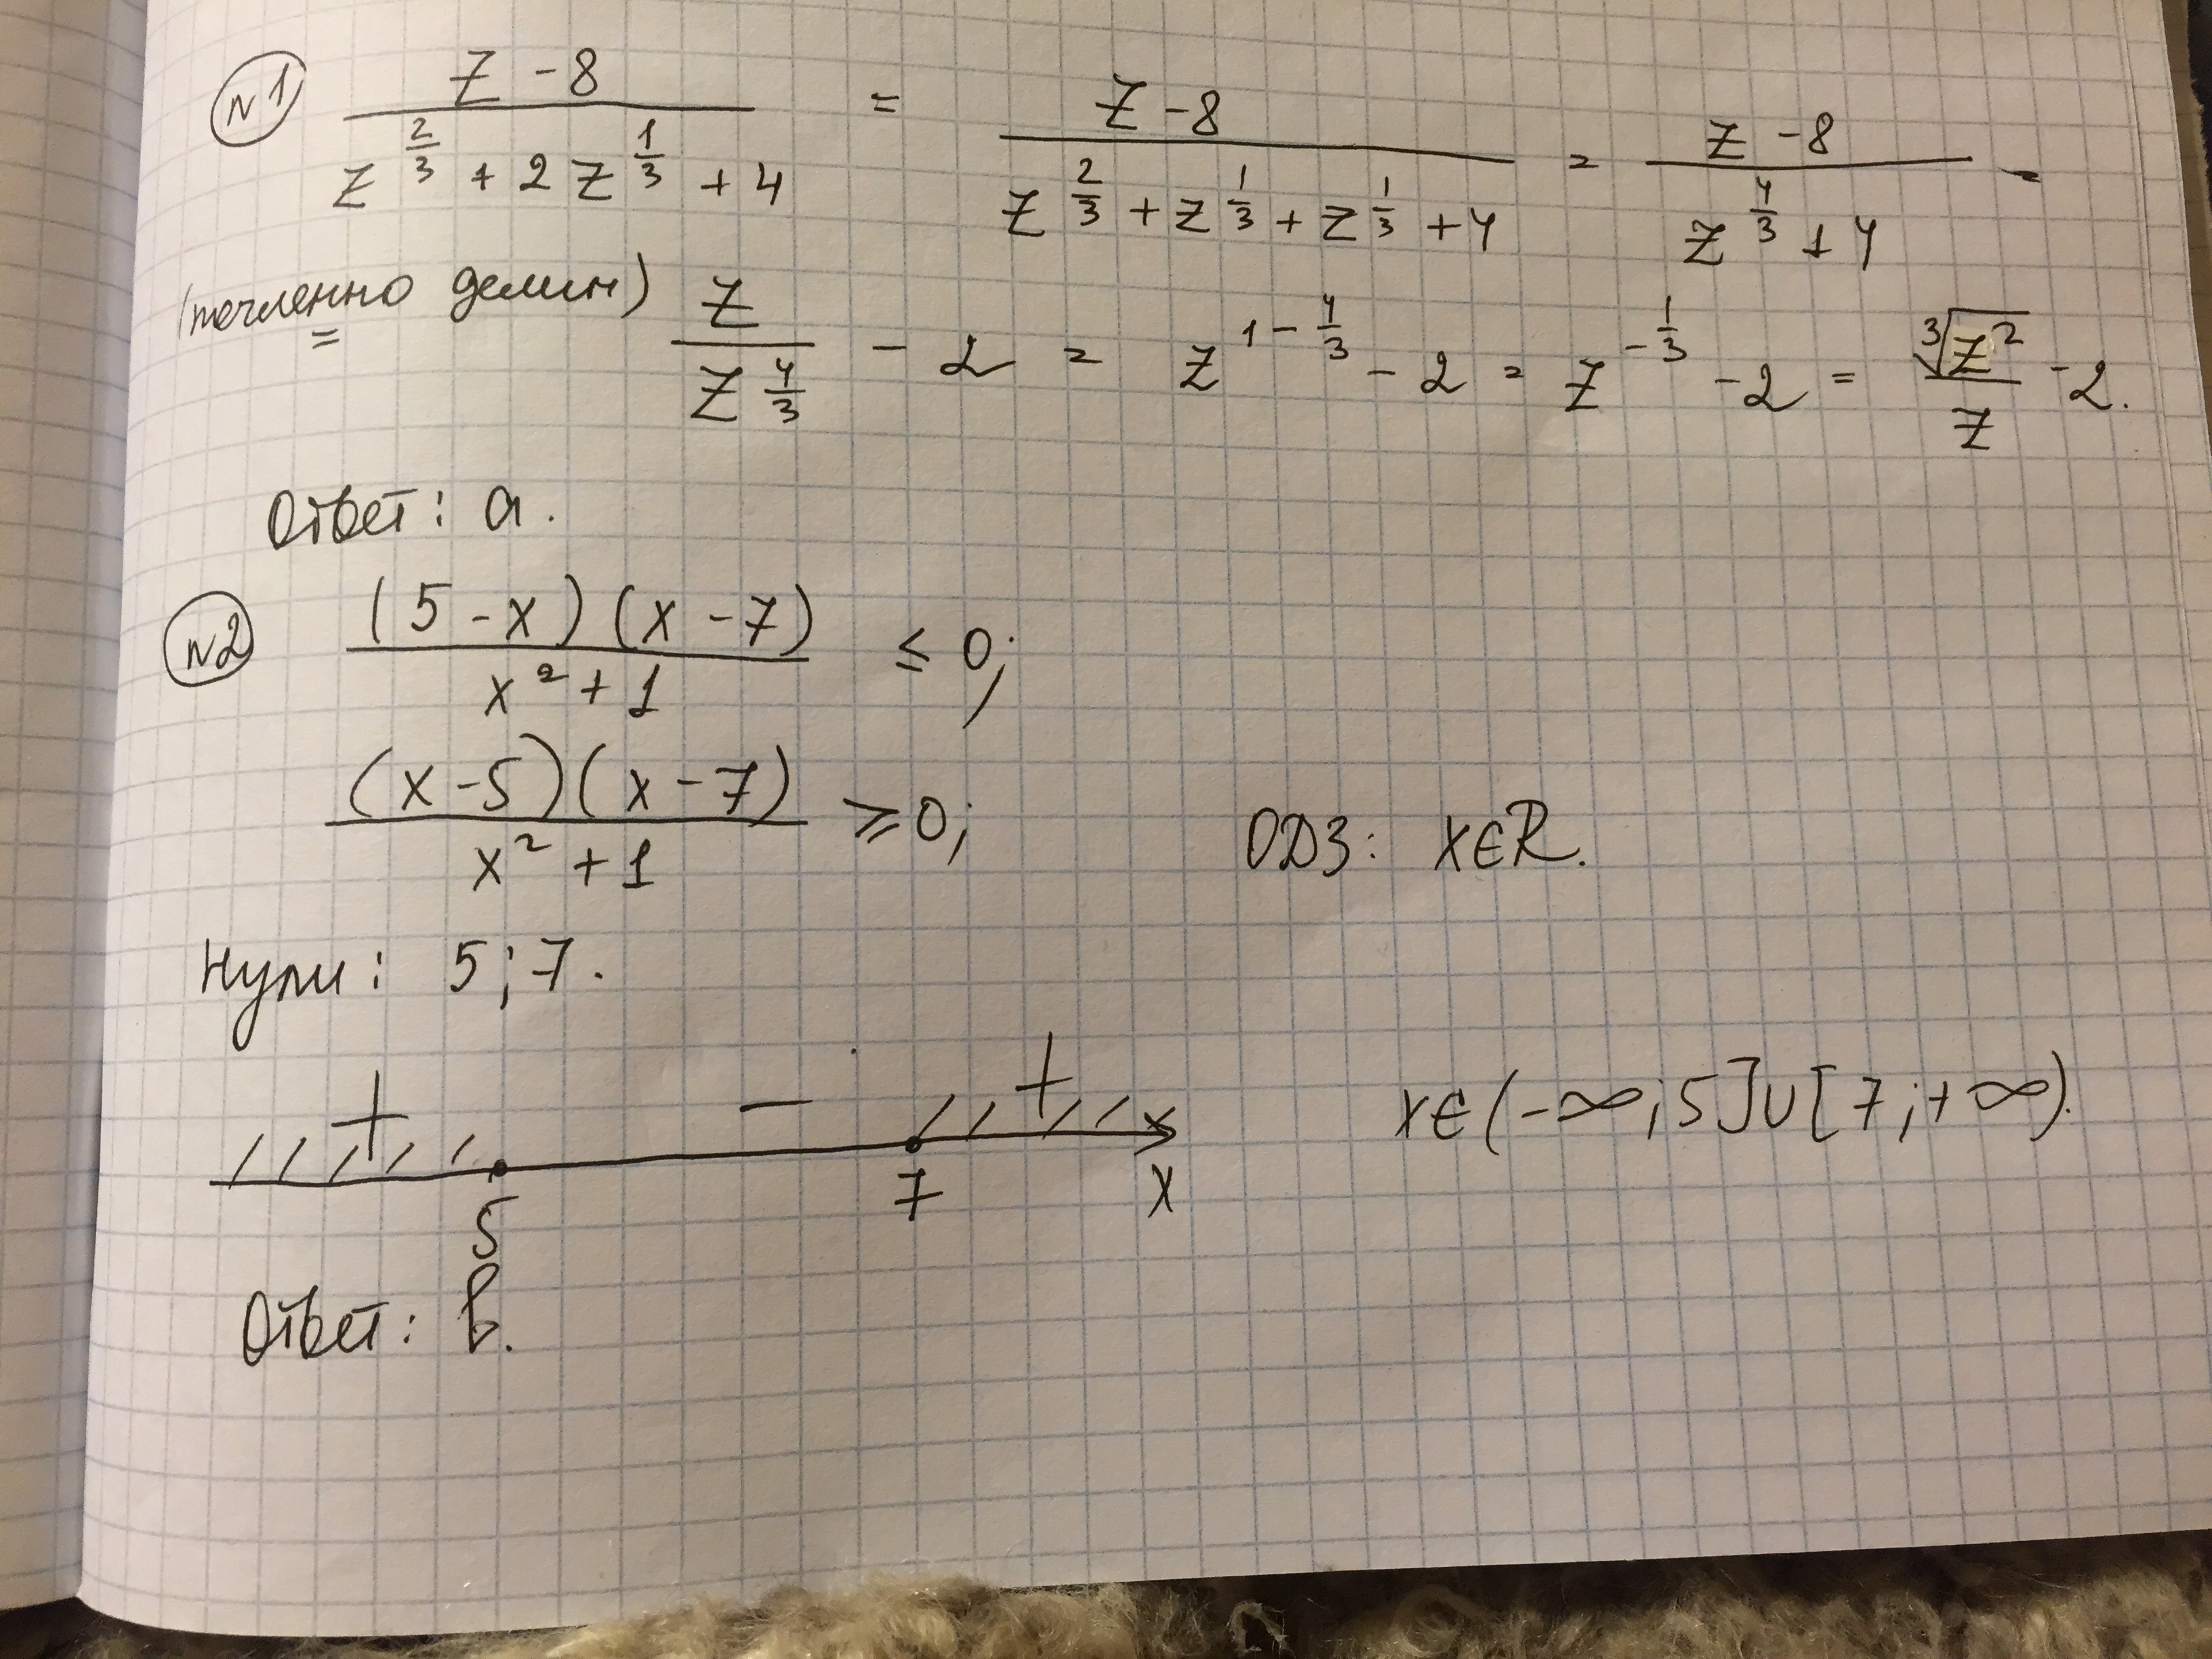 №1 \frac{z-8}{z^{\frac{2}{3}}+2z^{\frac{1}{3}}+4} = \frac{z-8}{z^{\frac{2}{3}}+z^{\frac{1}{3}}+z^{\frac{1}{3}}+4} = \frac{z-8}{z^{\frac{4}{3}}+4} =
(почленно делим) = \frac{z}{z^{\frac{4}{3}}} - 2 = z^{1-\frac{4}{3}} - 2 = z^{-\frac{1}{3}} - 2 = \frac{\sqrt[3]{z^2}}{z} - 2.
Ответ: а.
№2 \frac{(5-x)(x-7)}{x^2+1} ≤ 0;
\frac{(x-5)(x-7)}{x^2+1} ≥ 0; ОДЗ: x∈R.
Нули: 5; 7.
+ - + x∈(-∞; 5]∪[7; +∞).
5 7 x
Ответ: в.